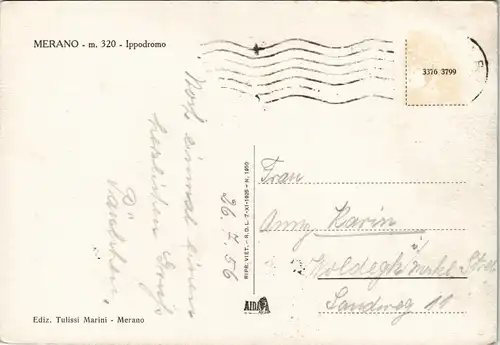 MERANO - m. 320 - Ippodromo
3376 3799
Noch einmal einen
herzlichen Gruß
Tantchen.
26. 7. 56
RIPR. VIET. - R.D.L. 7-XI-1925 - N. 1950
Frau
Anny Karin
Woldegk
Sandweg 11
Ediz. Tulissi Marini - Merano